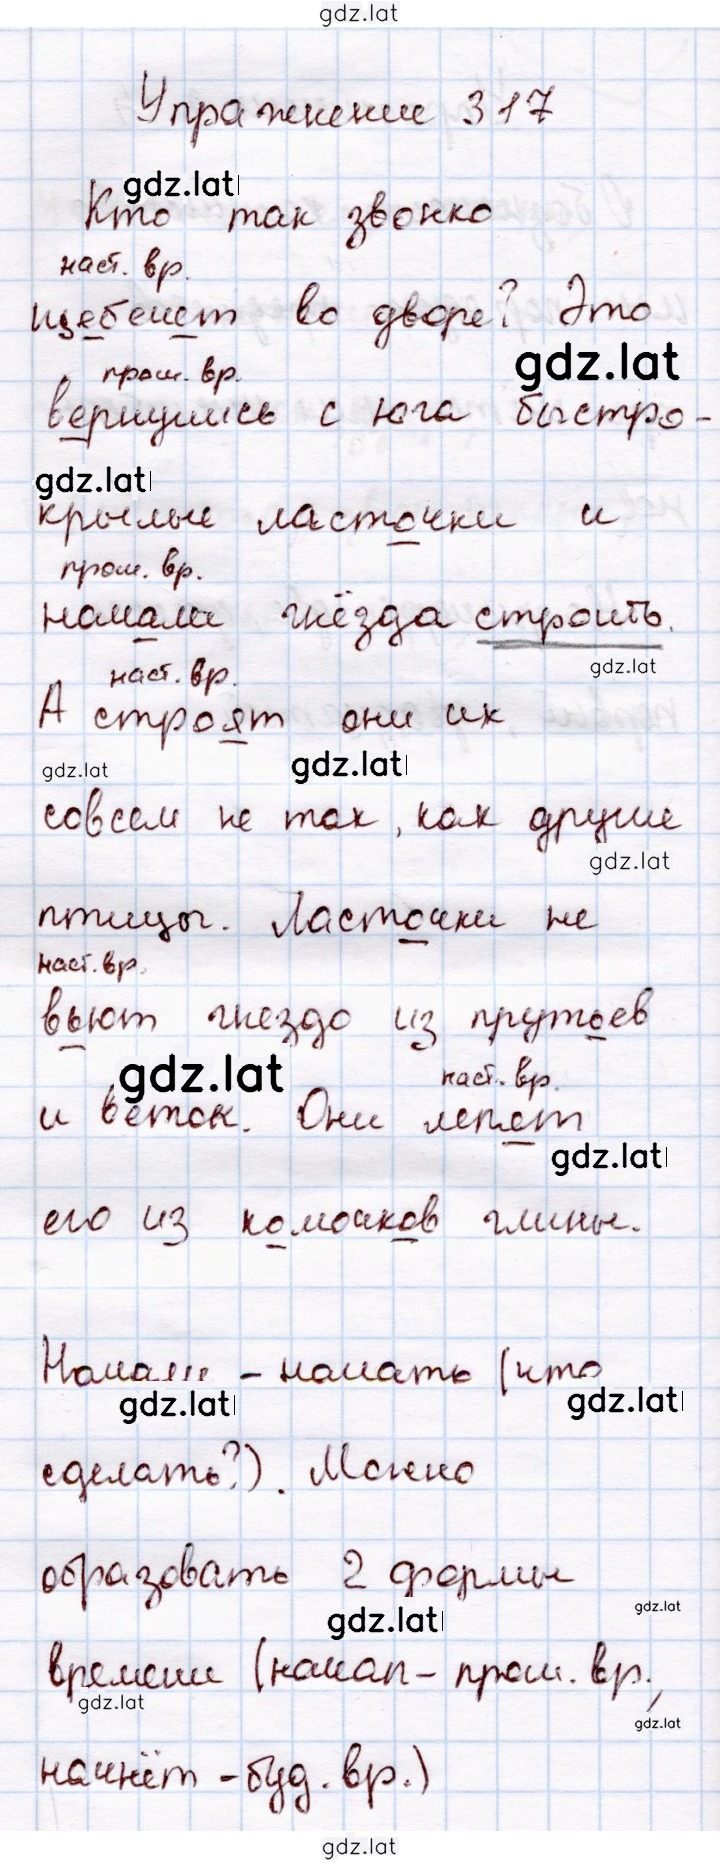 gdz.lat
Упражнение 317
gdz.lat
Кто так звонко
наст. вр.
щебечет во дворе? Это
gdz.lat
прош. вр.
вернулись с юга быстро-
gdz.lat
крылые ласточки и
прош. вр.
начали гнёзда строить.
gdz.lat
наст. вр.
А строят они их
gdz.lat
gdz.lat
совсем не так, как другие
gdz.lat
птицы. Ласточки не
наст. вр.
вьют гнездо из прутьев
gdz.lat
наст. вр.
и веток. Они лепят
gdz.lat
его из комочков глины.
Начали - начать (что
gdz.lat
gdz.lat
сделать?). Можно
образовать 2 формы
gdz.lat
gdz.lat
времени (начал - прош. вр.,
gdz.lat
gdz.lat
начнёт - буд. вр.)
gdz.lat